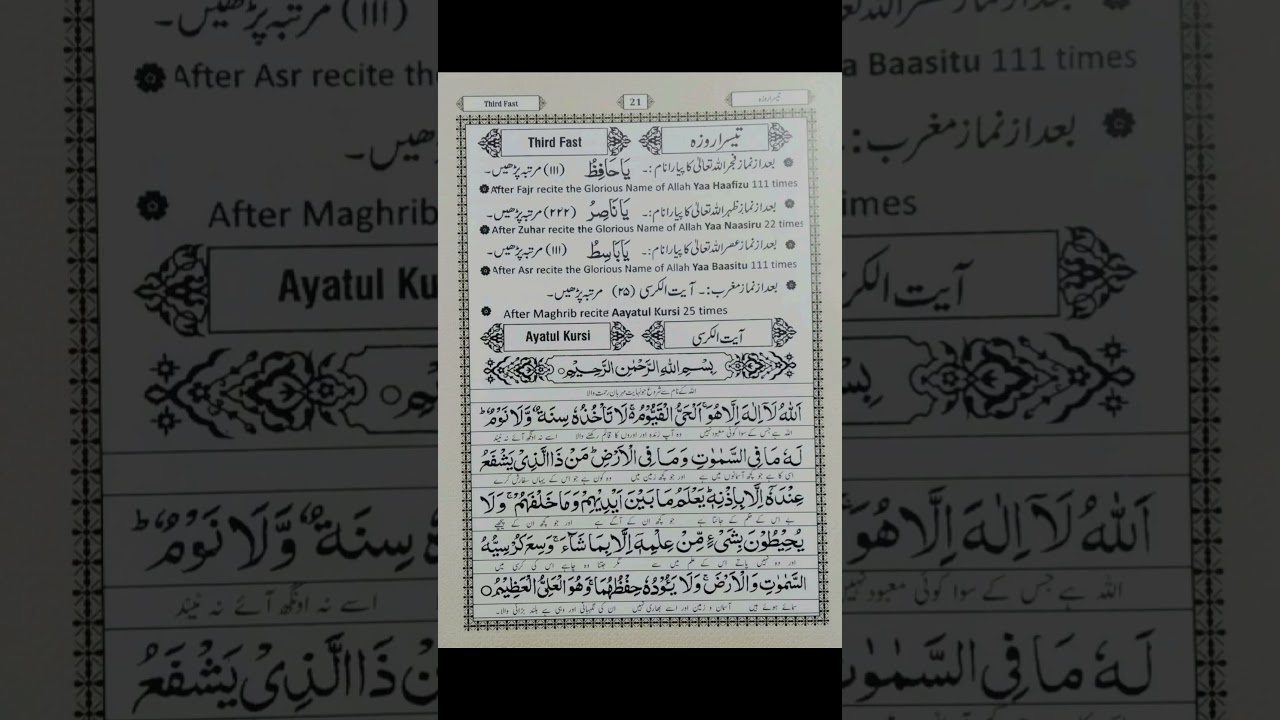 Third Fast
21
تیسرا روزہ
Third Fast
تیسرا روزہ
بعد از نماز فجر اللہ تعالیٰ کا پیارا نام :۔ یَا حَافِظُ (۱۱۱) مرتبہ پڑھیں۔
After Fajr recite the Glorious Name of Allah Yaa Haafizu 111 times
بعد از نماز ظہر اللہ تعالیٰ کا پیارا نام :۔ یَا نَاصِرُ (۲۲۲) مرتبہ پڑھیں۔
After Zuhar recite the Glorious Name of Allah Yaa Naasiru 22 times
بعد از نماز عصر اللہ تعالیٰ کا پیارا نام :۔ یَا بَاسِطُ (۱۱۱) مرتبہ پڑھیں۔
After Asr recite the Glorious Name of Allah Yaa Baasitu 111 times
بعد از نماز مغرب :۔ آیت الکرسی (۲۵) مرتبہ پڑھیں۔
After Maghrib recite Aayatul Kursi 25 times
Ayatul Kursi
آیت الکرسی
بِسْمِ اللهِ الرَّحْمٰنِ الرَّحِيْمِ
اللہ کے نام سے شروع جو نہایت مہربان رحمت والا
اَللهُ لَآ اِلٰهَ اِلَّا هُوَ ۚ اَلْحَیُّ الْقَیُّوْمُ ۚ لَا تَاْخُذُهٗ سِنَةٌ وَّلَا نَوْمٌ ؕ
اللہ ہے جس کے سوا کوئی معبود نہیں وہ آپ زندہ اور اوروں کا قائم رکھنے والا اسے نہ اونگھ آئے نہ نیند
لَهٗ مَا فِی السَّمٰوٰتِ وَمَا فِی الْاَرْضِ ؕ مَنْ ذَا الَّذِیْ یَشْفَعُ
اسی کا ہے جو کچھ آسمانوں میں ہے اور جو کچھ زمین میں وہ کون ہے جو اس کے یہاں سفارش کرے
عِنْدَهٗۤ اِلَّا بِاِذْنِهٖ ؕ یَعْلَمُ مَا بَیْنَ اَیْدِیْهِمْ وَمَا خَلْفَهُمْ ۚ وَلَا
بے اس کے حکم کے جانتا ہے جو کچھ ان کے آگے ہے اور جو کچھ ان کے پیچھے
یُحِیْطُوْنَ بِشَیْءٍ مِّنْ عِلْمِهٖۤ اِلَّا بِمَا شَآءَ ۚ وَسِعَ كُرْسِیُّهُ
اور وہ نہیں پاتے اس کے علم میں سے مگر جتنا وہ چاہے اس کی کرسی میں
السَّمٰوٰتِ وَالْاَرْضَ ۚ وَلَا یَـُٔوْدُهٗ حِفْظُهُمَا ۚ وَهُوَ الْعَلِیُّ الْعَظِیْمُ
سمائے ہوئے ہیں آسمان و زمین اور اسے بھاری نہیں ان کی نگہبانی اور وہی ہے بلند بڑائی والا۔